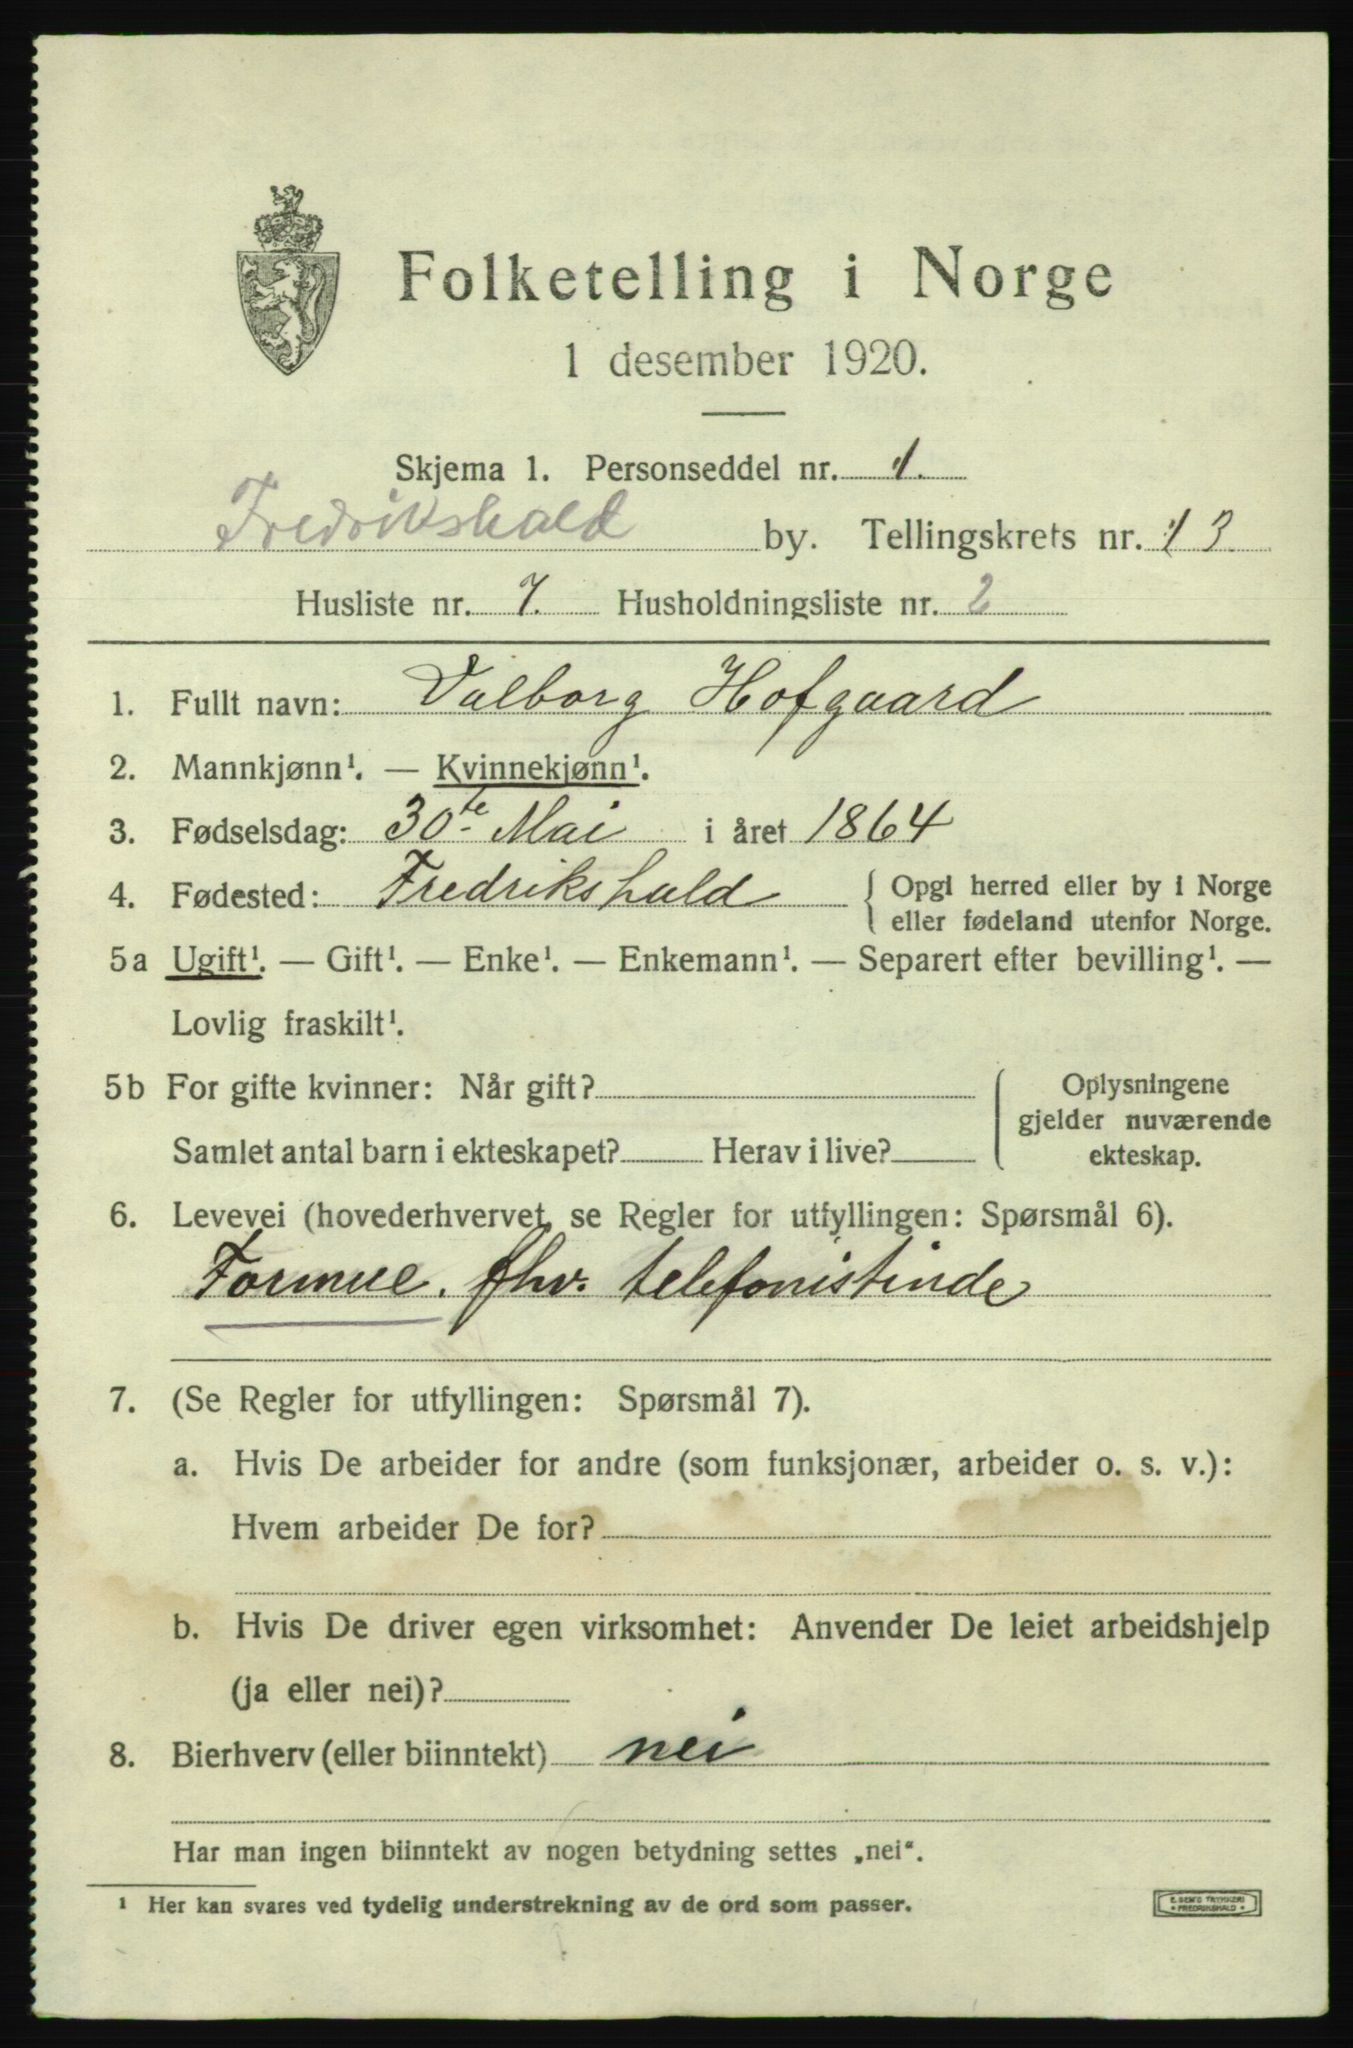 Folketelling i Norge
1 desember 1920.
Skjema 1. Personseddel nr. 1.
Fredrikshald by. Tellingskrets nr. 13
Husliste nr. 7. Husholdningsliste nr. 2
1. Fullt navn: Valborg Hofgaard
2. Mannkjønn¹. — Kvinnekjønn¹.
3. Fødselsdag: 30te Mai i året 1864
4. Fødested: Fredrikshald { Opgi herred eller by i Norge
eller fødeland utenfor Norge.
5a Ugift¹. — Gift¹. — Enke¹. — Enkemann¹. — Separert efter bevilling¹. —
Lovlig fraskilt¹.
5b For gifte kvinner: Når gift?
Samlet antal barn i ekteskapet? Herav i live?
Oplysningene
gjelder nuværende
ekteskap.
6. Levevei (hovederhvervet, se Regler for utfyllingen: Spørsmål 6).
Formue. fhv. telefonistinde
7. (Se Regler for utfyllingen: Spørsmål 7).
a. Hvis De arbeider for andre (som funksjonær, arbeider o. s. v.):
Hvem arbeider De for?
b. Hvis De driver egen virksomhet: Anvender De leiet arbeidshjelp
(ja eller nei)?
8. Bierhverv (eller biinntekt) nei
Har man ingen biinntekt av nogen betydning settes „nei“.
¹ Her kan svares ved tydelig understrekning av de ord som passer.
E. SEM'S TRYKKERI
FREDRIKSHALD